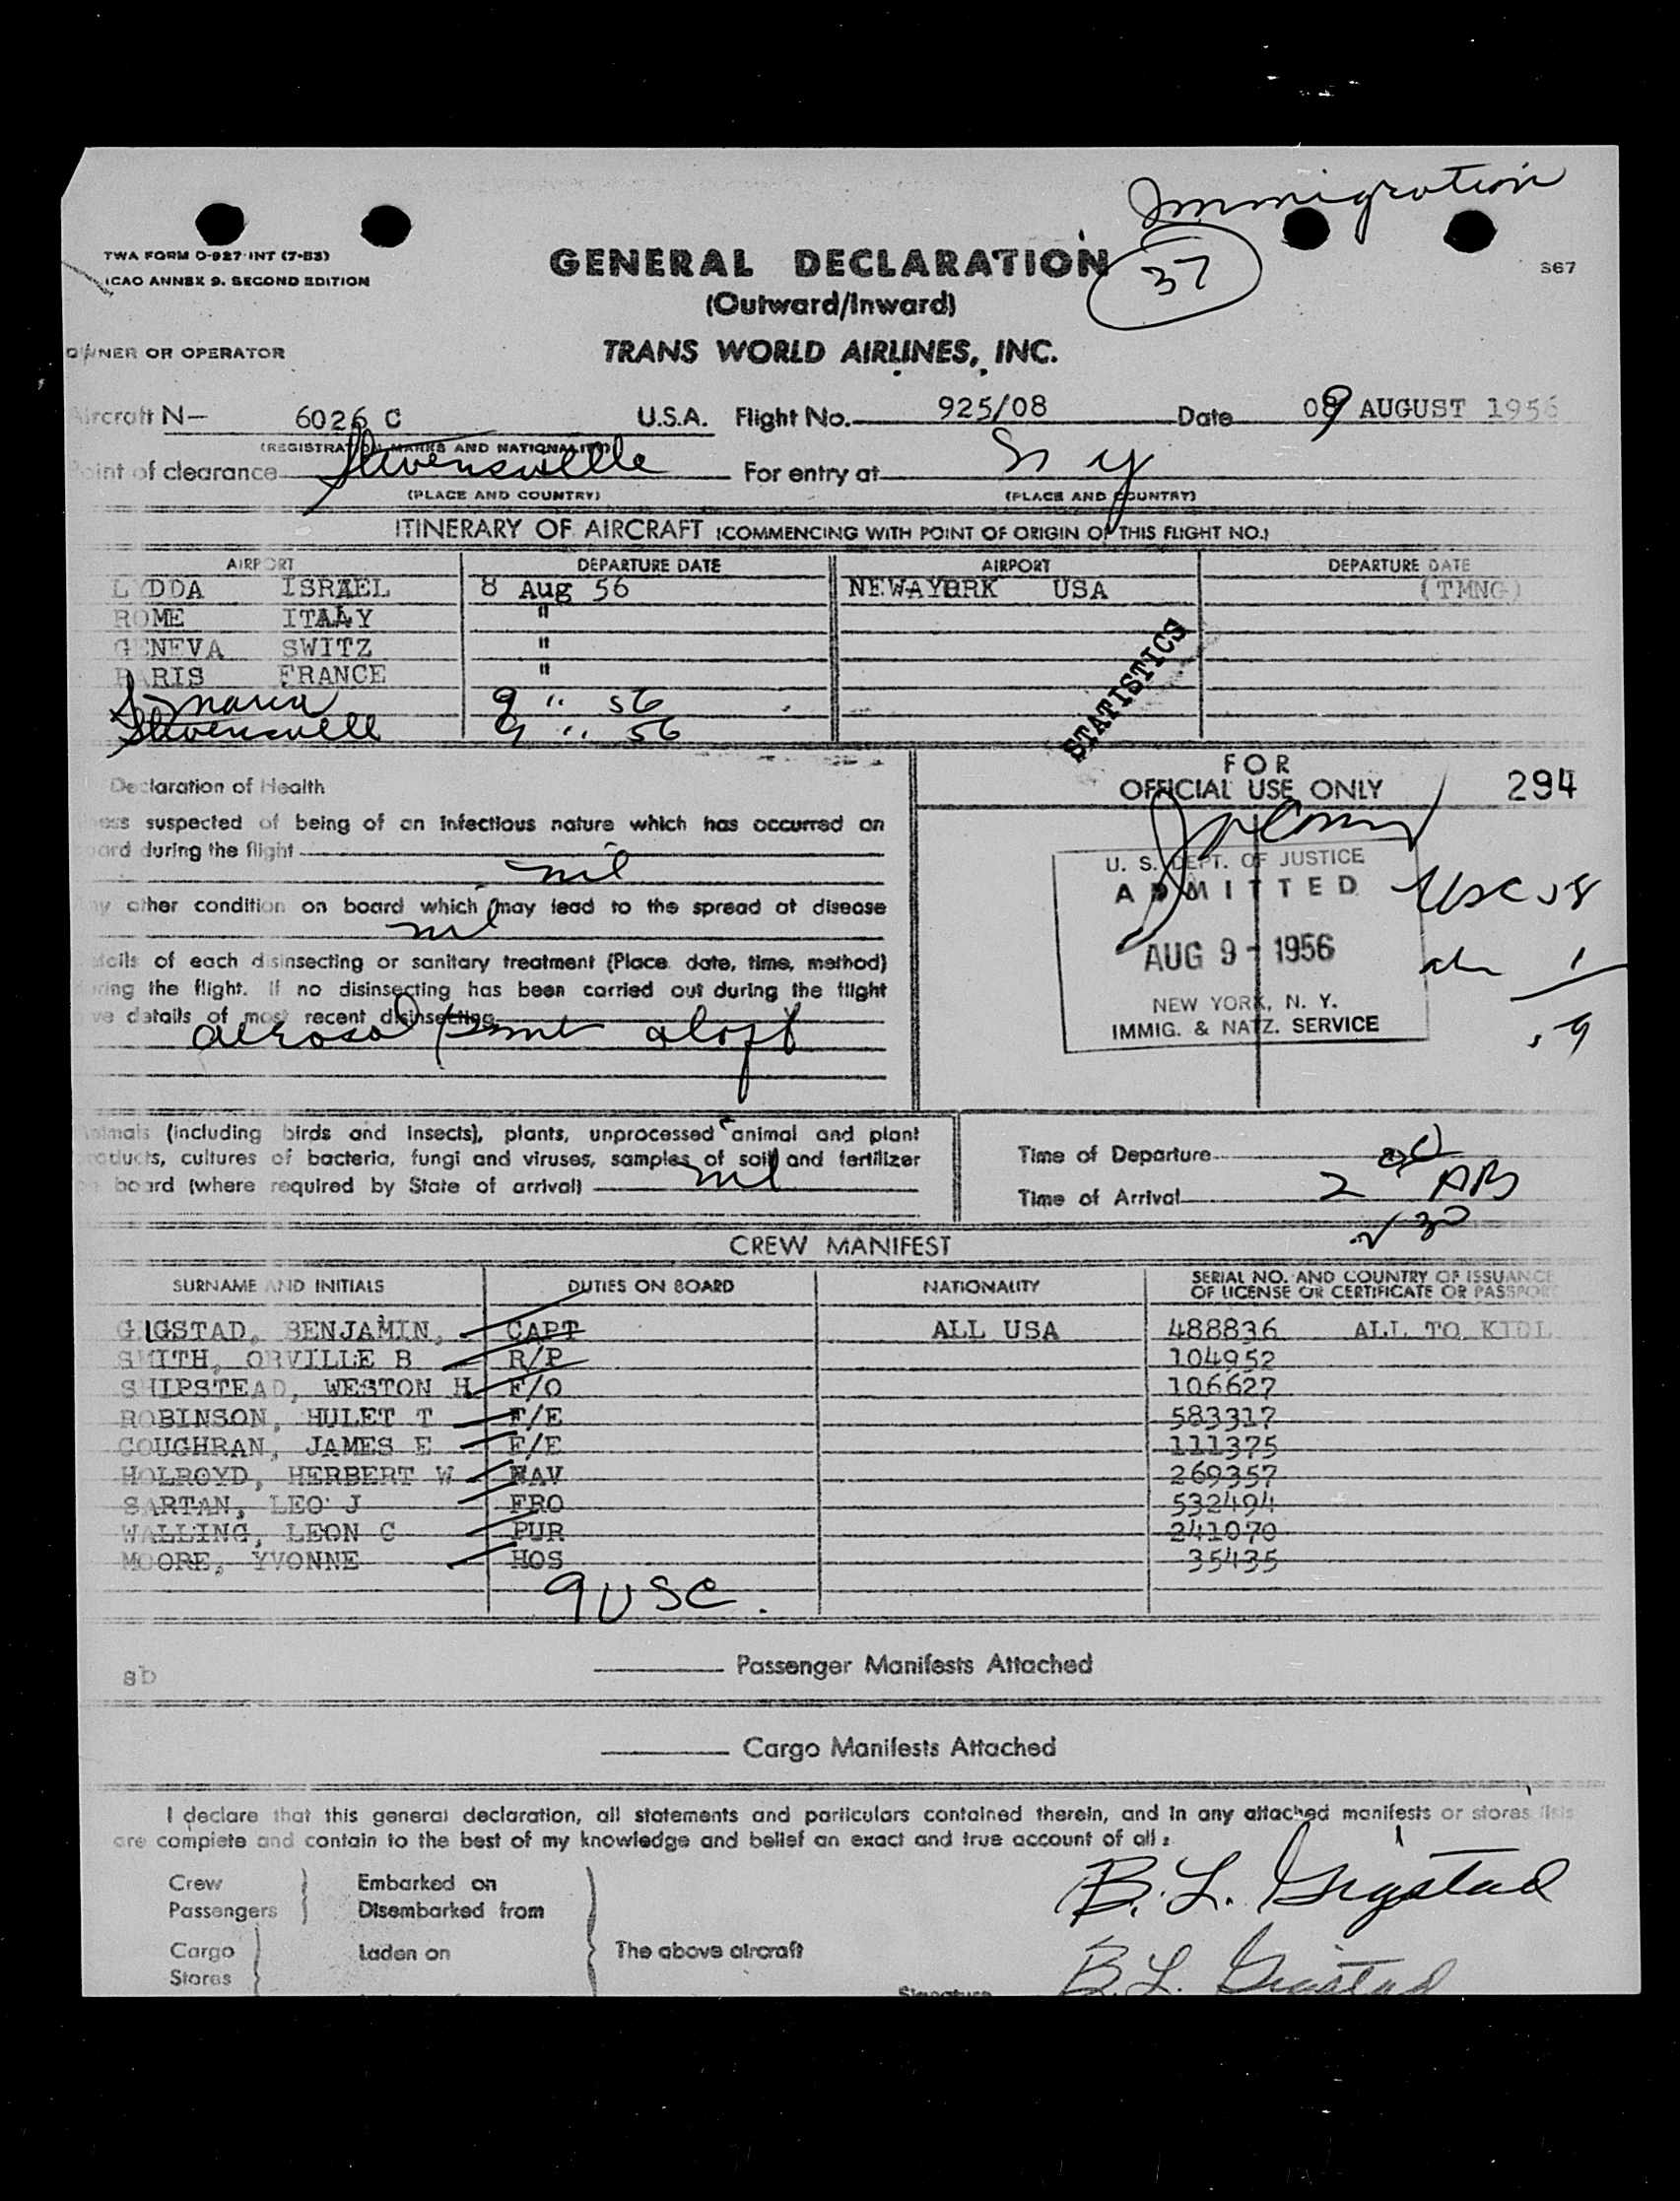 Immigration
TWA FORM O-927 INT (7-53)
ICAO ANNEX 9. SECOND EDITION
GENERAL DECLARATION
37
S67
(Outward/Inward)
OWNER OR OPERATOR
TRANS WORLD AIRLINES, INC.
Aircraft N- 6026 C U.S.A. Flight No. 925/08 Date 09 AUGUST 1956
(REGISTRATION MARKS AND NATIONALITY)
Point of clearance Stevensville For entry at N Y
(PLACE AND COUNTRY) (PLACE AND COUNTRY)
ITINERARY OF AIRCRAFT (COMMENCING WITH POINT OF ORIGIN OF THIS FLIGHT NO.)
AIRPORT DEPARTURE DATE AIRPORT DEPARTURE DATE
LYDDA ISRAEL 8 Aug 56 NEW YORK USA (TMNG)
ROME ITALY "
GENEVA SWITZ "
PARIS FRANCE "
S. maria 9 " 56
Stevensvill 9 " 56
STATISTICS
FOR
OFFICIAL USE ONLY 294
Declaration of Health
ness suspected of being of an infectious nature which has occurred on
oard during the flight
nil
ny other condition on board which may lead to the spread of disease
nil
etails of each disinsecting or sanitary treatment (Place date, time, method)
uring the flight. If no disinsecting has been carried out during the flight
ive details of most recent disinsecting
aerosol bomb aloft
U. S. DEPT. OF JUSTICE
ADMITTED
AUG 9 - 1956
NEW YORK, N. Y.
IMMIG. & NATZ. SERVICE
USC 58
aln 1
59
Animals (including birds and insects), plants, unprocessed animal and plant
roducts, cultures of bacteria, fungi and viruses, samples of soil and fertilizer
on board (where required by State of arrival) nil
Time of Departure
Time of Arrival 2
30
CREW MANIFEST
SURNAME AND INITIALS DUTIES ON BOARD NATIONALITY SERIAL NO. AND COUNTRY OF ISSUANCE
OF LICENSE OR CERTIFICATE OR PASSPORT
GRIGSTAD, BENJAMIN, CAPT ALL USA 488836 ALL TO KIDL
SMITH, ORVILLE B R/P 104952
SHIPSTEAD, WESTON H F/O 106627
ROBINSON, HULET T F/E 583317
COUGHRAN, JAMES E F/E 111375
HOLROYD, HERBERT W NAV 269357
SARTAN, LEO J FRO 532494
WALLING, LEON C PUR 241070
MOORE, YVONNE HOS 35435
9 USC.
Passenger Manifests Attached
sb
Cargo Manifests Attached
I declare that this general declaration, all statements and particulars contained therein, and in any attached manifests or stores lists
are complete and contain to the best of my knowledge and belief an exact and true account of all :
Crew Embarked on
Passengers Disembarked from
Cargo Laden on The above aircraft
Stores
B. L. Grigstad
Signature B. L. Grigstad